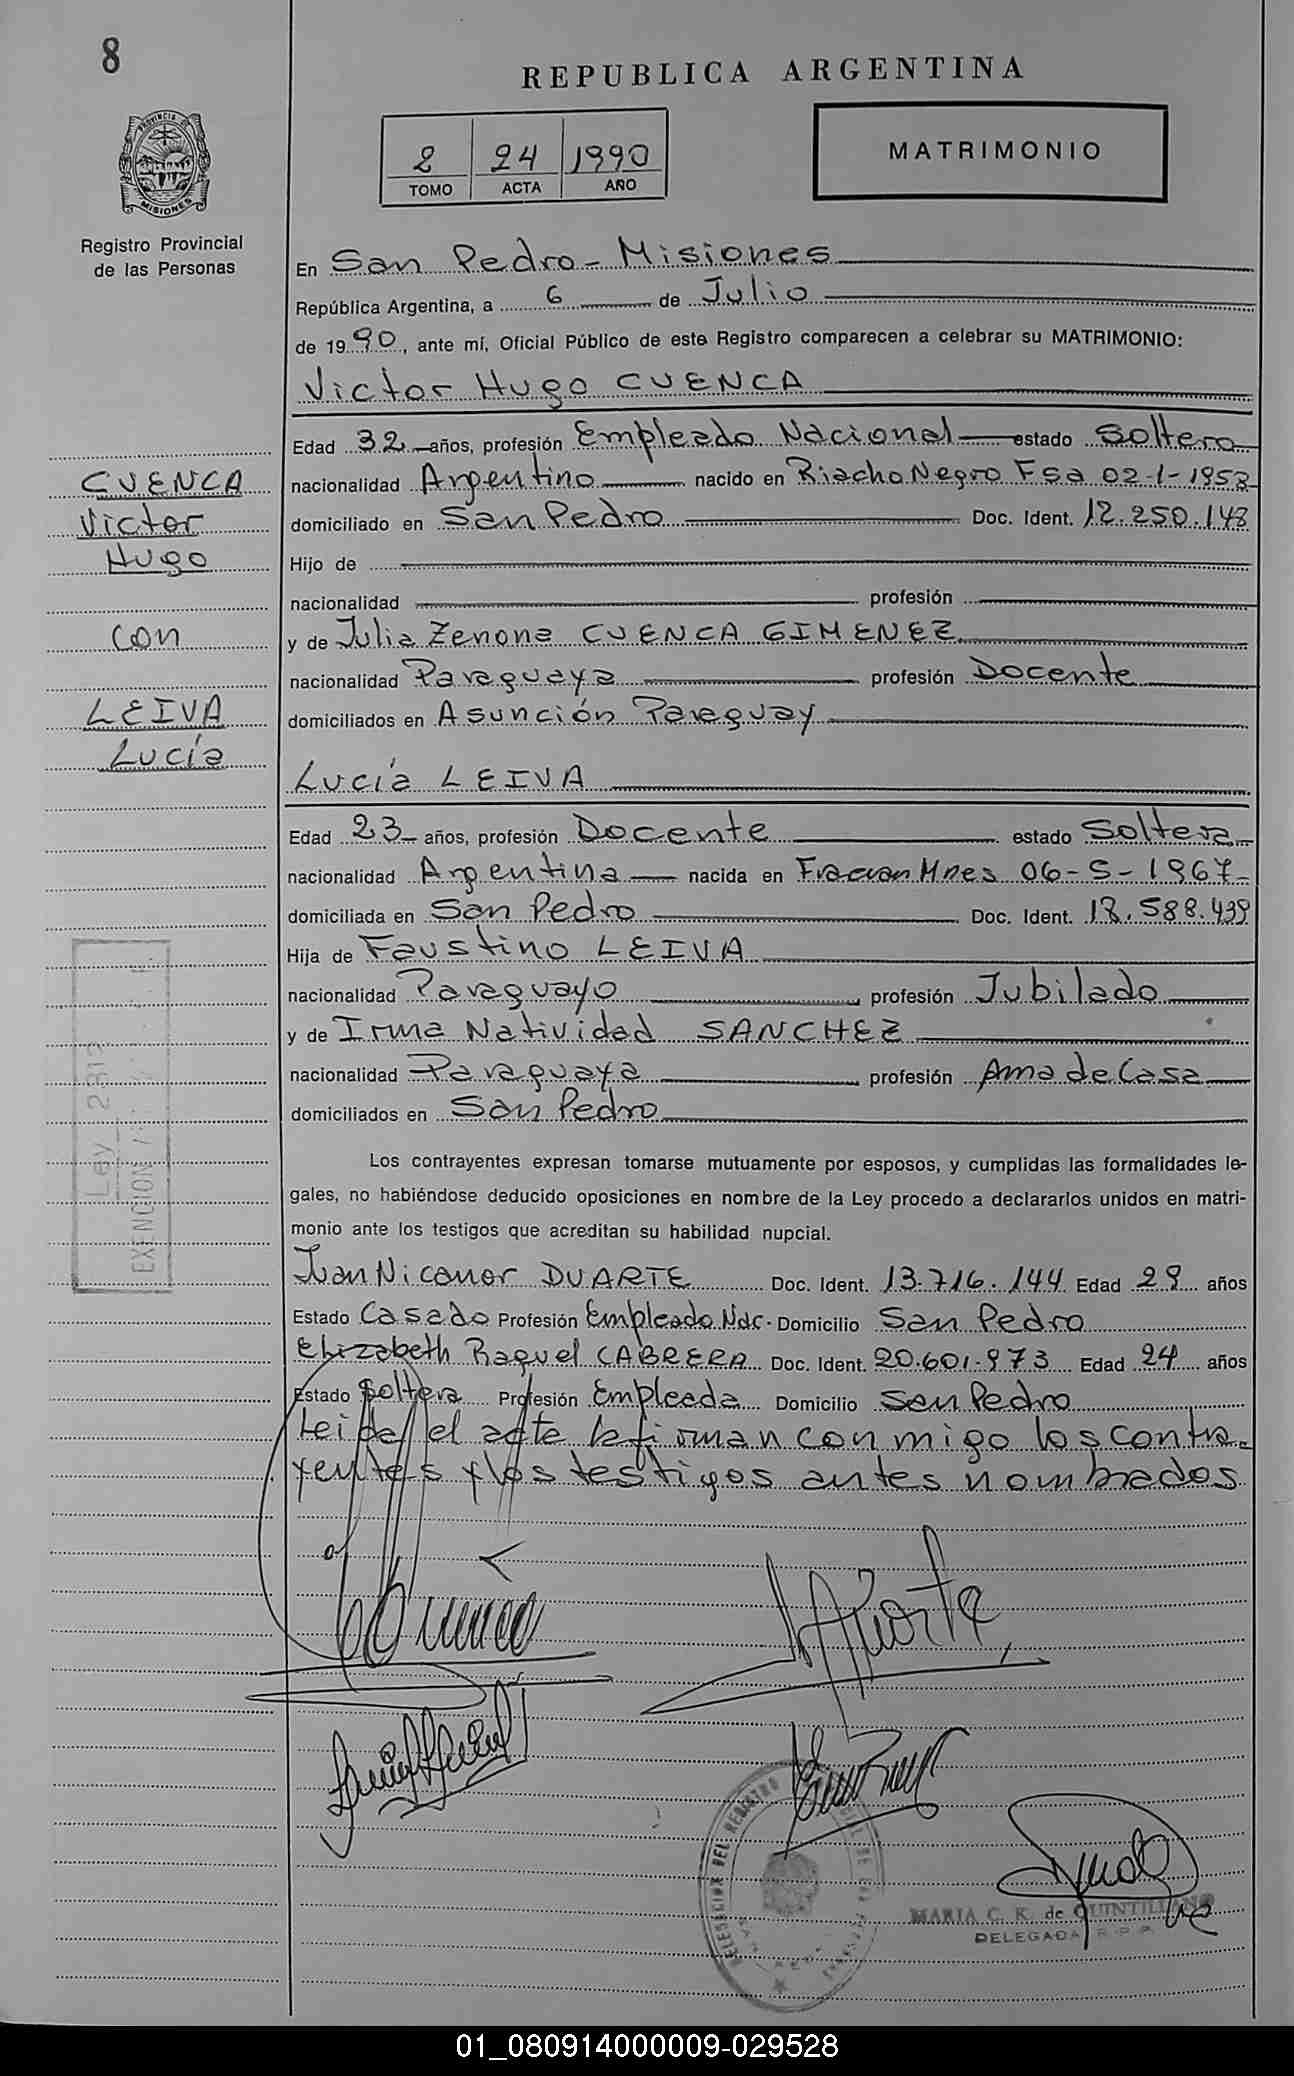 8
REPUBLICA ARGENTINA
2 24 1990
TOMO ACTA AÑO
MATRIMONIO
PROVINCIA DE
MISIONES
Registro Provincial
de las Personas
En San Pedro - Misiones
República Argentina, a 6 de Julio
de 1990, ante mí, Oficial Público de este Registro comparecen a celebrar su MATRIMONIO:
Victor Hugo CUENCA
Edad 32 años, profesión Empleado Nacional estado Soltero
nacionalidad Argentino nacido en Riacho Negro Fsa 02-1-1958
domiciliado en San Pedro Doc. Ident. 12.250.143
Hijo de
nacionalidad profesión
y de Julia Zenona CUENCA GIMENEZ
nacionalidad Paraguaya profesión Docente
domiciliados en Asunción Paraguay
CUENCA
Victor
Hugo
con
LEIVA
Lucía
Lucía LEIVA
Edad 23 años, profesión Docente estado Soltera
nacionalidad Argentina nacida en Fracran Mnes 06-5-1967
domiciliada en San Pedro Doc. Ident. 18.588.439
Hija de Faustino LEIVA
nacionalidad Paraguayo profesión Jubilado
y de Irma Natividad SANCHEZ
nacionalidad Paraguaya profesión Ama de Casa
domiciliados en San Pedro
Ley 2813
EXENCION
Los contrayentes expresan tomarse mutuamente por esposos, y cumplidas las formalidades le-
gales, no habiéndose deducido oposiciones en nombre de la Ley procedo a declararlos unidos en matri-
monio ante los testigos que acreditan su habilidad nupcial.
Juan Nicanor DUARTE Doc. Ident. 13.716.144 Edad 29 años
Estado Casado Profesión Empleado Nac. Domicilio San Pedro
Elizabeth Raquel CABRERA Doc. Ident. 20.601.973 Edad 24 años
Estado Soltera Profesión Empleada Domicilio San Pedro
Leida el acta la firman conmigo los contra-
yentes y los testigos antes nombrados
DELEGACION DEL REGISTRO
MARIA C. K. de QUINTILLANO
DELEGADA R.P.P.
01_080914000009-029528